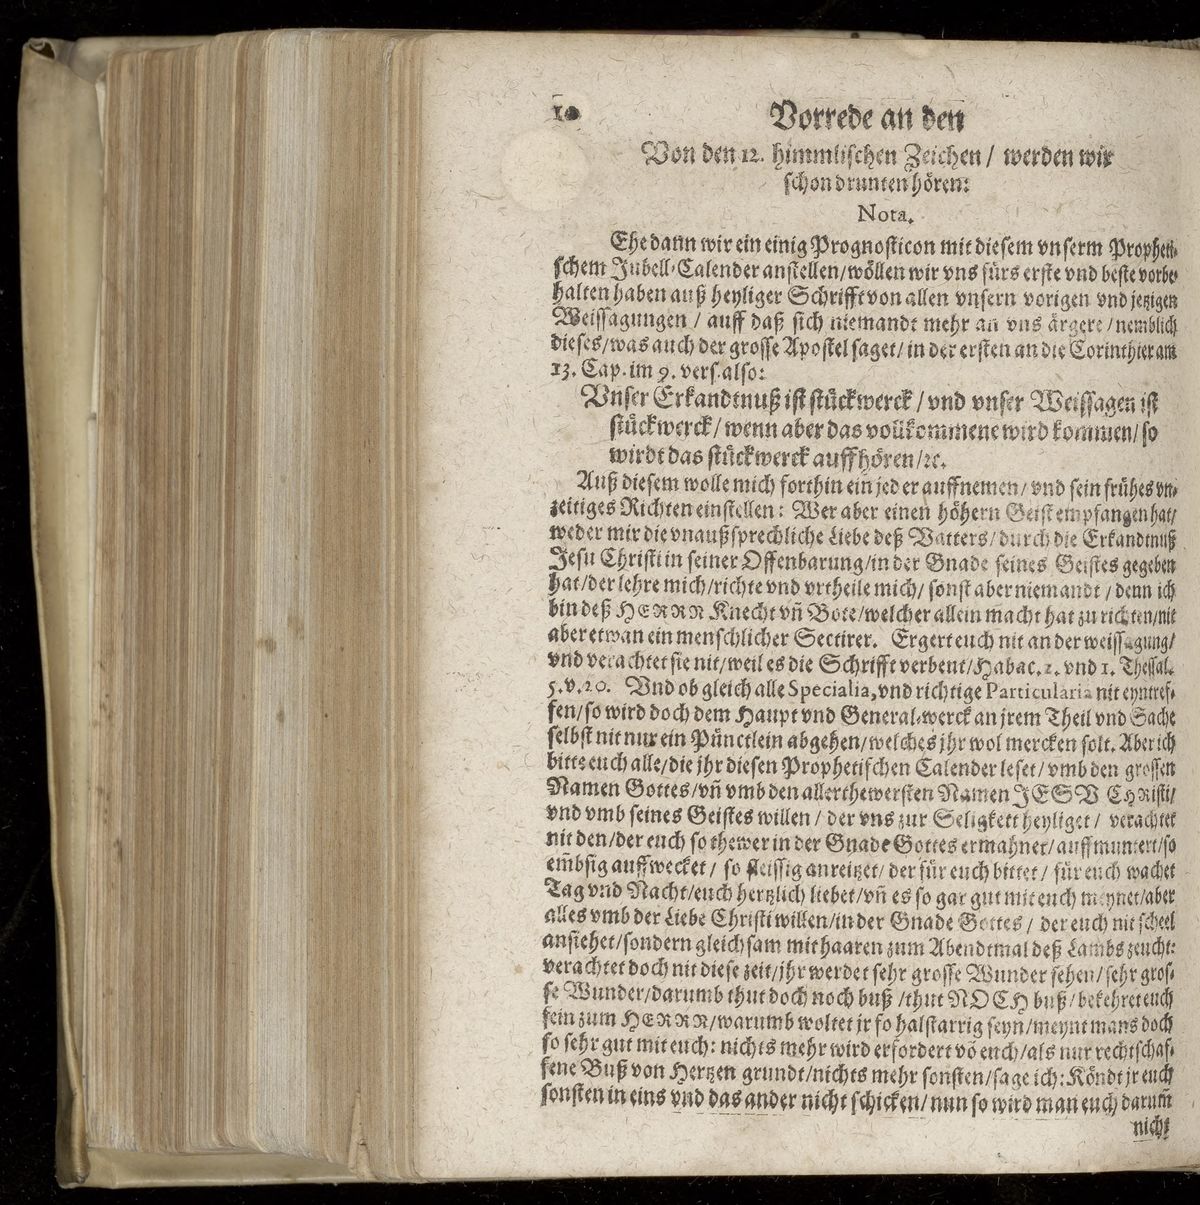 10
Vorrede an den
Von den 12. himmlischen Zeichen / werden wir
schon drunten hören:
Nota.
Ehe dann wir ein einig Prognosticon mit diesem vnserm Propheti-
schem Jubell-Calender anstellen/wöllen wir vns fürs erste vnd beste vorbe-
halten haben auß heyliger Schrifft von allen vnsern vorigen vnd jetzigen
Weissagungen / auff daß sich niemandt mehr an vns ärgere / nemblich
dieses/was auch der grosse Apostel saget/in der ersten an die Corinthier am
13. Cap. im 9. vers. also:
Vnser Erkandtnuß ist stückwerck / vnd vnser Weissagen ist
stückwerck / wenn aber das vollkommene wird kommen/ so
wirdt das stückwerck auffhören /ꝛc.
Auß diesem wolle mich forthin ein jeder auffnemen/ vnd sein frühes vn-
zeitiges Richten einstellen: Wer aber einen höhern Geist empfangen hat/
weder mir die vnaußsprechliche Liebe deß Vatters/durch die Erkandtnuß
Jesu Christi in seiner Offenbarung/in der Gnade seines Geistes gegeben
hat/der lehre mich/richte vnd vrtheile mich/ sonst aber niemandt / denn ich
bin deß HERRN Knecht vñ Bote/welcher allein macht hat zu richten/nit
aber etwan ein menschlicher Sectirer. Ergert euch nit an der weissagung/
vnd verachtet sie nit/weil es die Schrifft verbeut/Habac. 2. vnd 1. Thessal.
5. v. 20. Vnd ob gleich alle Specialia, vnd richtige Particularia nit eyntref-
fen/so wird doch dem Haupt vnd General-werck an jrem Theil vnd Sache
selbst nit nur ein Pünctlein abgehen/welches jhr wol mercken solt. Aber ich
bitte euch alle/die jhr diesen Prophetischen Calender leset/vmb den grossen
Namen Gottes/vñ vmb den allerthewersten Namen JESV CHRisti/
vnd vmb seines Geistes willen / der vns zur Seligkett heyliget / verachtet
nit den/der euch so thewer in der Gnade Gottes ermahnet/auffmuntert/so
em̃bsig auffwecket / so fleissig anreitzet/ der für euch bittet / für euch wachet
Tag vnd Nacht/euch hertzlich liebet/vñ es so gar gut mit euch meynet/aber
alles vmb der Liebe Christi willen/in der Gnade Gottes / der euch nit scheel
ansiehet/sondern gleichsam mit haaren zum Abendtmal deß Lambs zeucht:
verachtet doch nit diese zeit/jhr werdet sehr grosse Wunder sehen/sehr gros-
se Wunder/darumb thut doch noch buß /thut NOCH buß/bekehret euch
fein zum HERRN/warumb woltet jr so halstarrig seyn/meynt mans doch
so sehr gut mit euch: nichts mehr wird erfordert võ euch/als nur rechtschaf-
fene Buß von Hertzen grundt/nichts mehr sonsten/sage ich: Köndt jr euch
sonsten in eins vnd das ander nicht schicken/nun so wird man euch darum̃
nicht